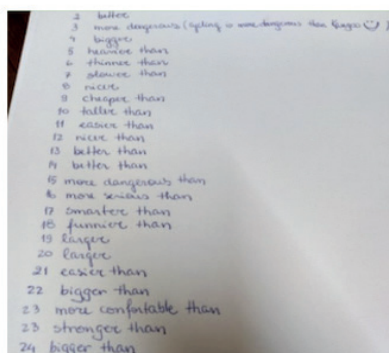 2 better
3 more dangerous (cycling is more dangerous than
4 bigger
5 heavier than
6 thinner than
7 slower than
8 nicer
9 cheaper than
10 taller than
11 easier than
12 nicer than
13 better than
14 better than
15 more dangerous than
16 more serious than
17 smarter than
18 funnier than
19 larger
20 larger
21 easier than
22 bigger than
23 more confortable than
23 stronger than
24 bigger than